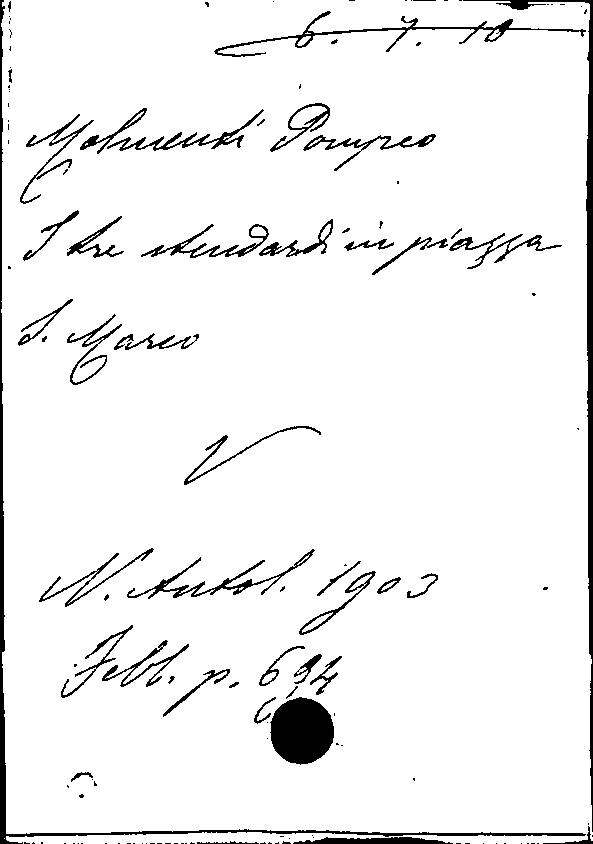 6. 7. 10
Molmenti Pompeo
I tre stendardi in piazza
S. Marco
V
N. Antol. 1903
Febb. p. 694